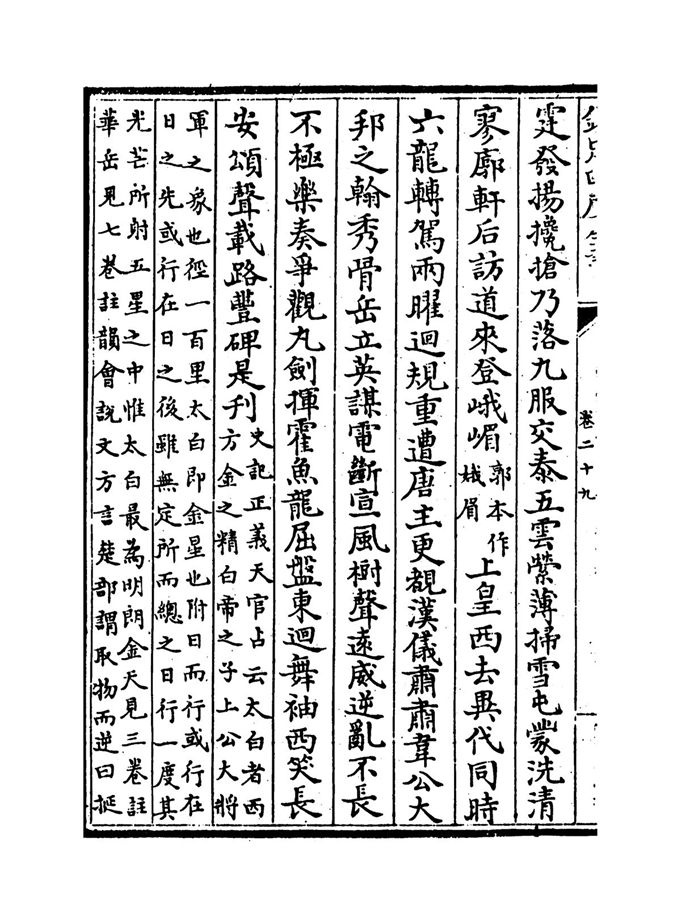 欽定四庫全書
卷二十九
霆發揚攙搶乃落九服交泰五雲縈薄掃雪屯蒙洗清
寥廓軒后訪道來登峨嵋郭本作娥眉上皇西去異代同時
六龍轉駕兩曜迴規重遭唐主更覩漢儀肅肅韋公大
邦之翰秀骨岳立英謀電斷宣風樹聲遠威逆亂不長
不極樂奏爭觀丸劍揮霍魚龍屈盤東迴舞袖西笑長
安頌聲載路豐碑是刋史記正義天官占云太白者西方金之精白帝之子上公大將
軍之象也徑一百里太白即金星也附日而行或行在
日之先或行在日之後雖無定所而總之日行一度其
光芒所射五星之中惟太白最為明朗金天見三卷註
華岳見七卷註韻會說文方言楚部謂取物而逆曰挻